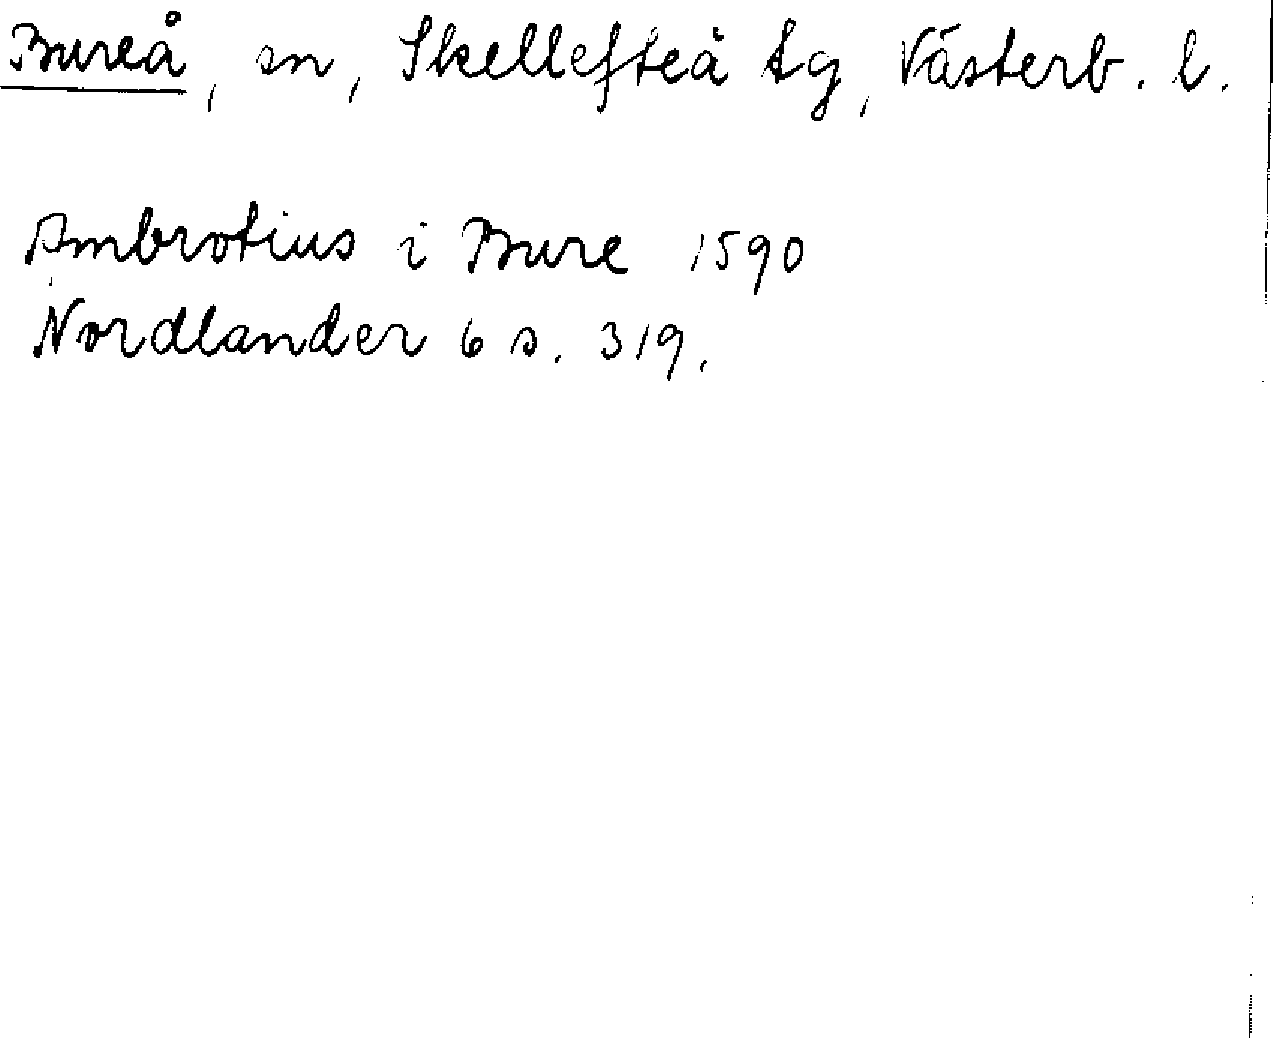 Bureå, sn, Skellefteå tg, Västerb. l.
Ambrotius i Bure 1590
Nordlander 6 s. 319.